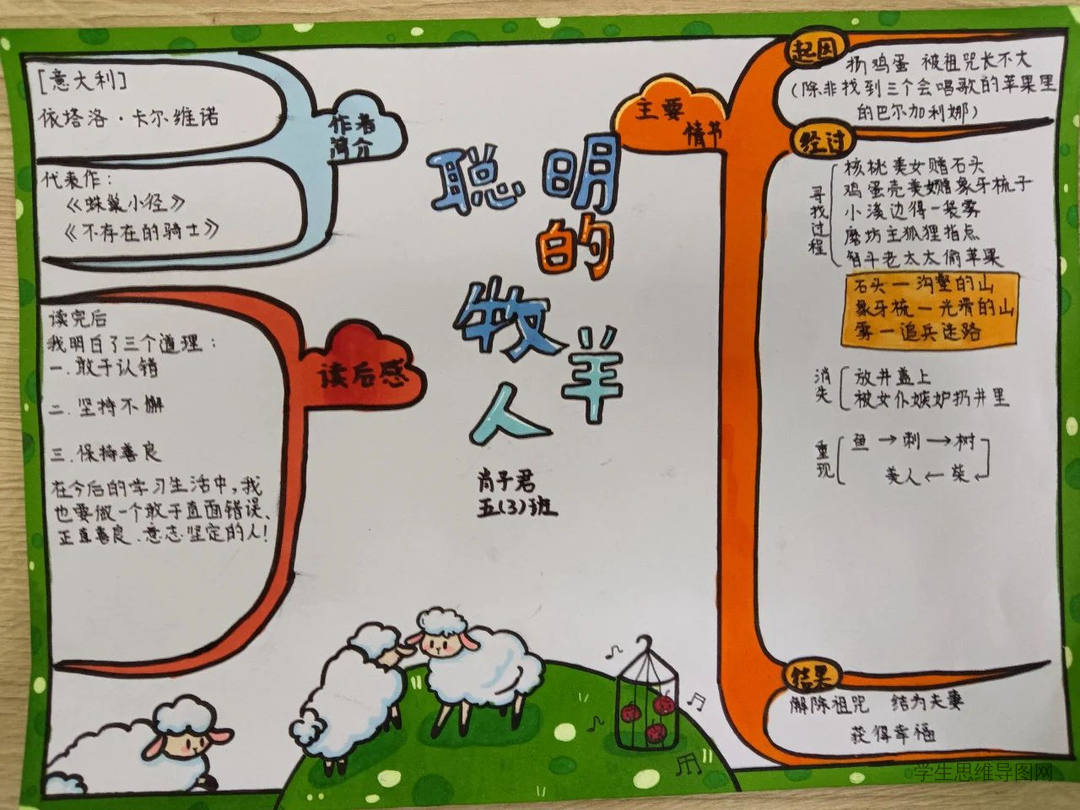 [意大利]
依塔洛·卡尔维诺
作者
简介
代表作：
《蛛巢小径》
《不存在的骑士》
读完后
我明白了三个道理：
一.敢于认错
二.坚持不懈
三.保持善良
在今后的学习生活中，我
也要做一个敢于直面错误、
正直善良、意志坚定的人！
读后感
聪明
的
牧
羊
人
肖子君
五(3)班
主要
情节
起因
扔鸡蛋 被诅咒长不大
(除非找到三个会唱歌的苹果里
的巴尔加利娜)
经过
寻找过程
核桃美女赠石头
鸡蛋壳美女赠象牙梳子
小溪边得一袋雾
磨坊主狐狸指点
智斗老太太偷苹果
石头一沟壑的山
象牙梳一光滑的山
雾一追兵迷路
消失
放井盖上
被女仆嫉妒扔井里
重现
鱼→刺→树
美人←柴←
结果
解除诅咒 结为夫妻
获得幸福
学生思维导图网